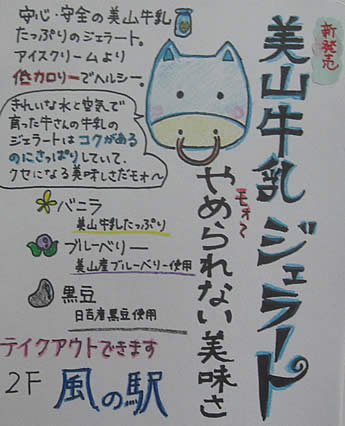 新発売
美山牛乳ジェラート
モォ〜
やめられない美味さ
安心・安全の美山牛乳
たっぷりのジェラート。
アイスクリームより
低カロリーでヘルシー。
きれいな水と空気で
育った牛さんの牛乳の
ジェラートはコクがある
のにさっぱりしていて、
クセになる美味しさだモォ〜
バニラ
美山牛乳たっぷり
ブルーベリー
美山産ブルーベリー使用
黒豆
日吉産黒豆使用
テイクアウトできます
2F 風の駅